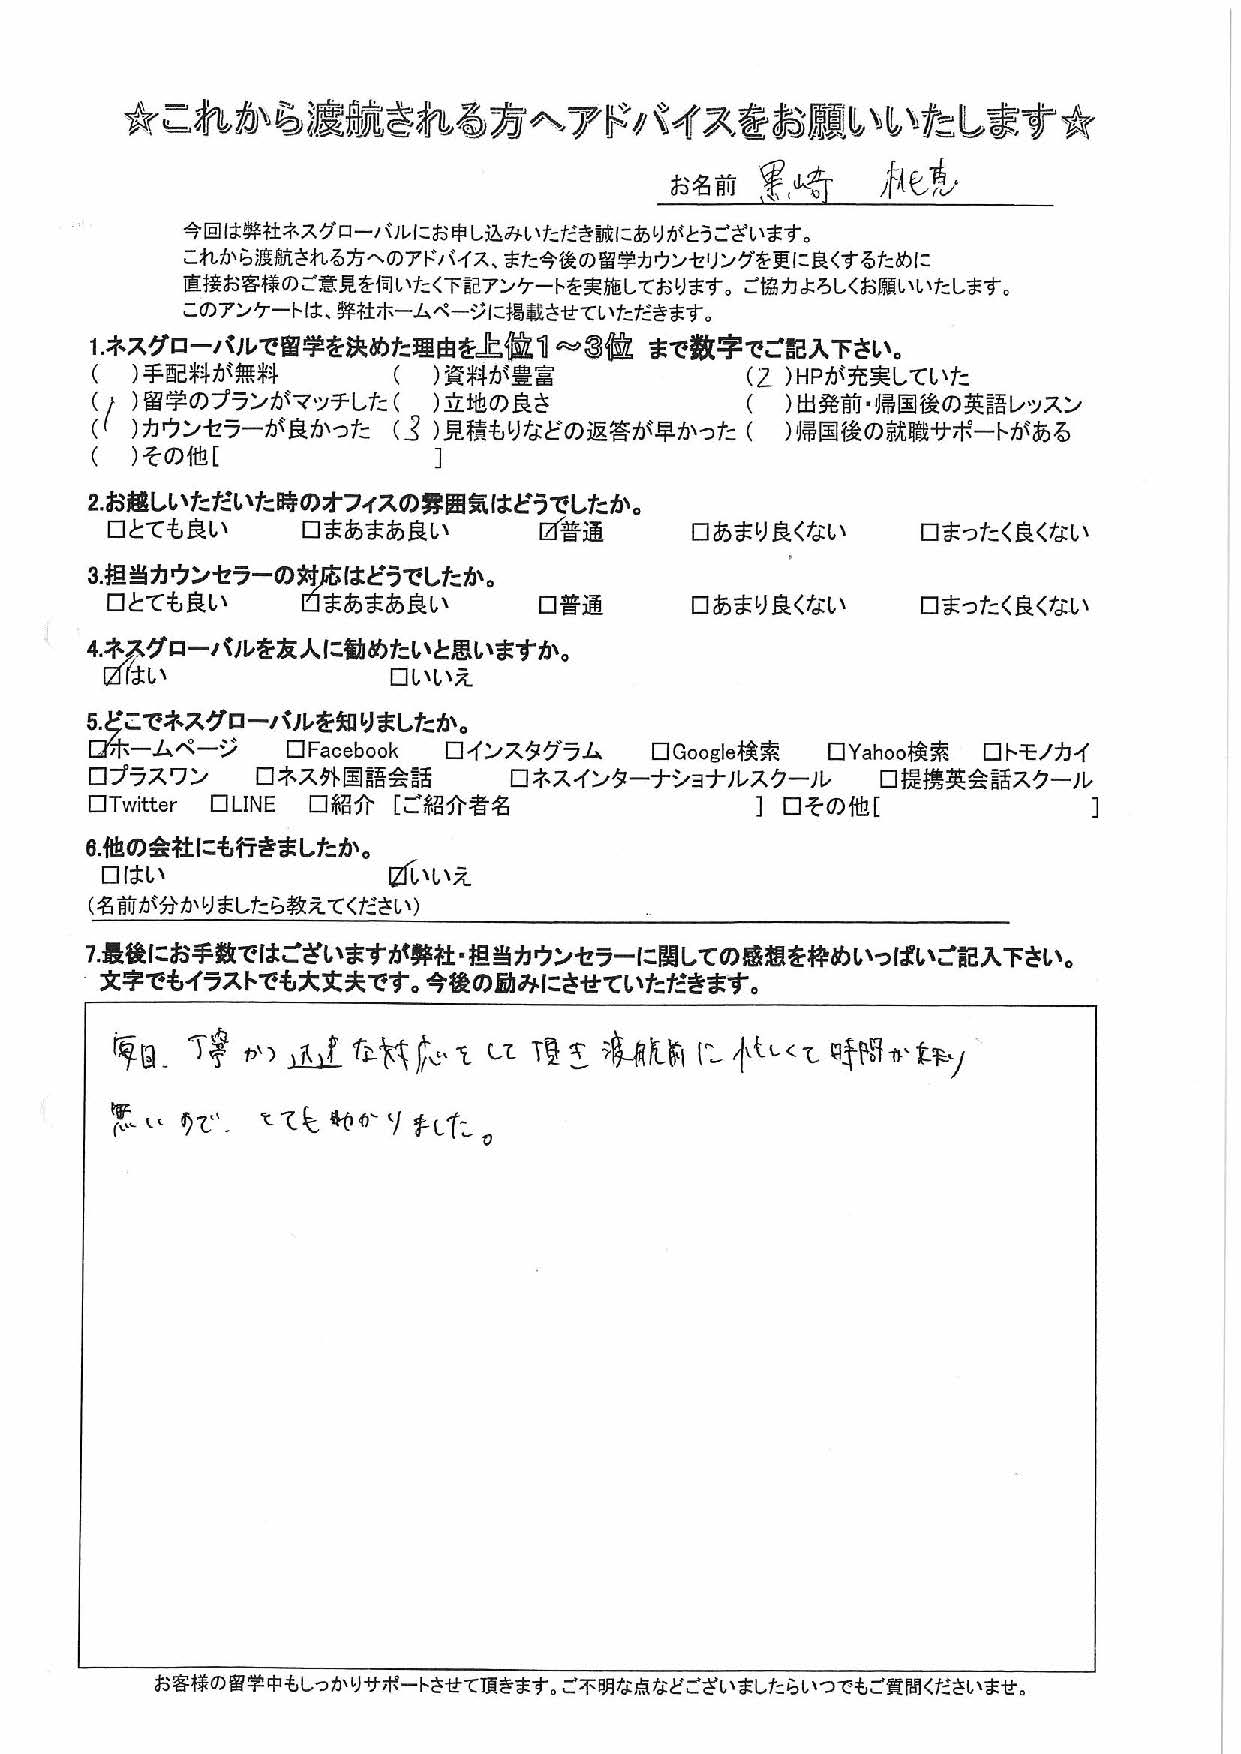 ☆これから渡航される方へアドバイスをお願いいたします☆
お名前 黒崎 桃恵
今回は弊社ネスグローバルにお申し込みいただき誠にありがとうございます。
これから渡航される方へのアドバイス、また今後の留学カウンセリングを更に良くするために
直接お客様のご意見を伺いたく下記アンケートを実施しております。ご協力よろしくお願いいたします。
このアンケートは、弊社ホームページに掲載させていただきます。
1.ネスグローバルで留学を決めた理由を上位1～3位 まで数字でご記入下さい。
( )手配料が無料 ( )資料が豊富 (2 )HPが充実していた
(1 )留学のプランがマッチした( )立地の良さ ( )出発前・帰国後の英語レッスン
( )カウンセラーが良かった (3 )見積もりなどの返答が早かった ( )帰国後の就職サポートがある
( )その他[ ]
2.お越しいただいた時のオフィスの雰囲気はどうでしたか。
□とても良い □まあまあ良い ☑普通 □あまり良くない □まったく良くない
3.担当カウンセラーの対応はどうでしたか。
□とても良い ☑まあまあ良い □普通 □あまり良くない □まったく良くない
4.ネスグローバルを友人に勧めたいと思いますか。
☑はい □いいえ
5.どこでネスグローバルを知りましたか。
☑ホームページ □Facebook □インスタグラム □Google検索 □Yahoo検索 □トモノカイ
□プラスワン □ネス外国語会話 □ネスインターナショナルスクール □提携英会話スクール
□Twitter □LINE □紹介 [ご紹介者名 ] □その他[ ]
6.他の会社にも行きましたか。
□はい ☑いいえ
(名前が分かりましたら教えてください)
7.最後にお手数ではございますが弊社・担当カウンセラーに関しての感想を枠めいっぱいご記入下さい。
文字でもイラストでも大丈夫です。今後の励みにさせていただきます。
毎日、丁寧かつ迅速な対応をして頂き渡航前に忙しくて時間が余り
無いので、とても助かりました。
お客様の留学中もしっかりサポートさせて頂きます。ご不明な点などございましたらいつでもご質問くださいませ。